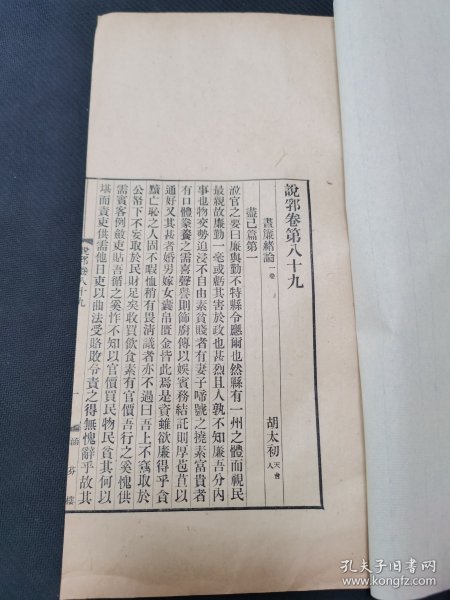 說郛卷第八十九
晝廉緒論 一卷 胡太初 天台人
盡己篇第一
涖官之要曰廉與勤不特縣令應爾也然縣有一州之體而視民
最親故廉勤一毫或虧其害於政也甚烈且人孰不知廉吾分內
事也物交勢迫浸不自由素貧賤者有妻子啼號之撓素富貴者
有口體豢養之需喜聲譽則飾廚傳以娛賓務結託則厚苞苴以
通好又其甚者婚男嫁女囊帛匱金皆此焉是資雖欲廉得乎貪
黷亡恥之人固不暇恤稍有畏清議者亦不過曰吾上不竊取於
公帑下不妄取於民財足矣收買飲食素有官價吾行之奚愧供
需賓客例斂吏貼吾循之奚怍不知以官價買民物民貧其何以
堪而責吏供需他日吏以曲法受賂敗令責之得無愧辭乎故其
說郛卷八十九
一
涵芬樓
孔夫子旧书网
www.kongfz.com